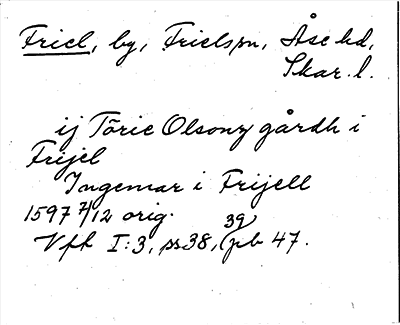 Friel, by, Frielspn, Åse hd,
Skar. l.
ij Törie Olsons gårdh i
Frijel
Ingemar i Frijell
1597 7/12 orig.
Vfh I:3, ss 38, 39 (pb 47.